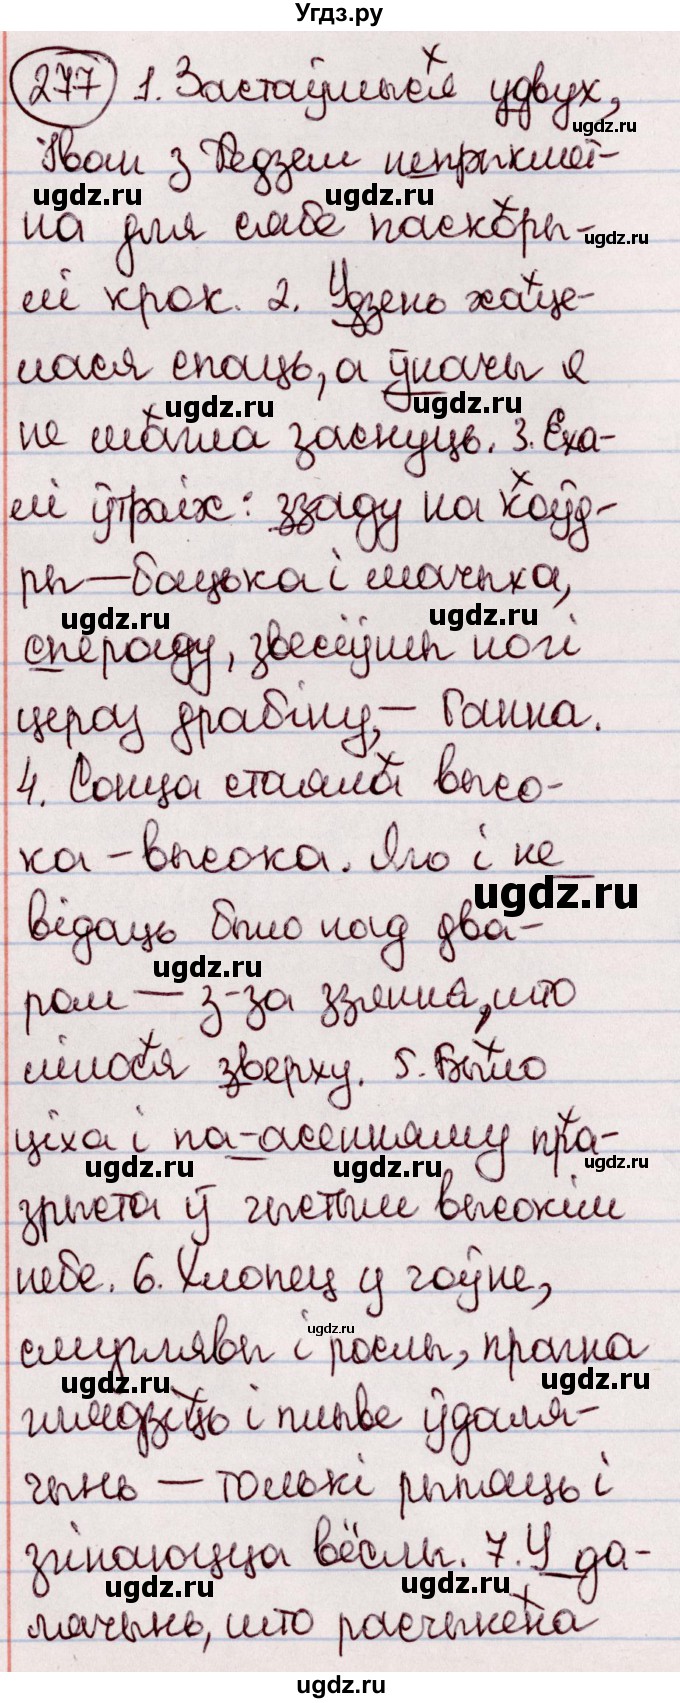 Угдз.ру
277 1. Застаўшыся удвух,
Іван з Федзем непрыкмет-
на для сябе паскоры-
лі крок. 2. Удзень хаце-
лася спаць, а ўначы я
не магла заснуць. 3. Еха-
лі ўтраіх: ззаду на коўд-
ры — бацька і мачыха,
спераду, звесіўшы ногі
цераз драбіну, — Ганна.
4. Сонца стаяла высо-
ка-высока. Яго і не
відаць было над два-
ром — з-за ззяння, што
лілося зверху. 5. Было
ціха і па-асенняму пра-
зрыста ў чыстым высокім
небе. 6. Хлопец у чоўне,
смуглявы і рослы, прагна
глядзіць і плыве ўдаля-
чынь — толькі рыпяць і
згінаюцца вёслы. 7. У да-
лячынь, што расчынена
ugdz.ru
ugdz.ru
ugdz.ru
ugdz.ru
ugdz.ru
ugdz.ru
ugdz.ru
ugdz.ru
ugdz.ru
ugdz.ru
ugdz.ru
ugdz.ru
ugdz.ru
ugdz.ru
ugdz.ru
ugdz.ru
ugdz.ru
ugdz.ru
ugdz.ru
ugdz.ru